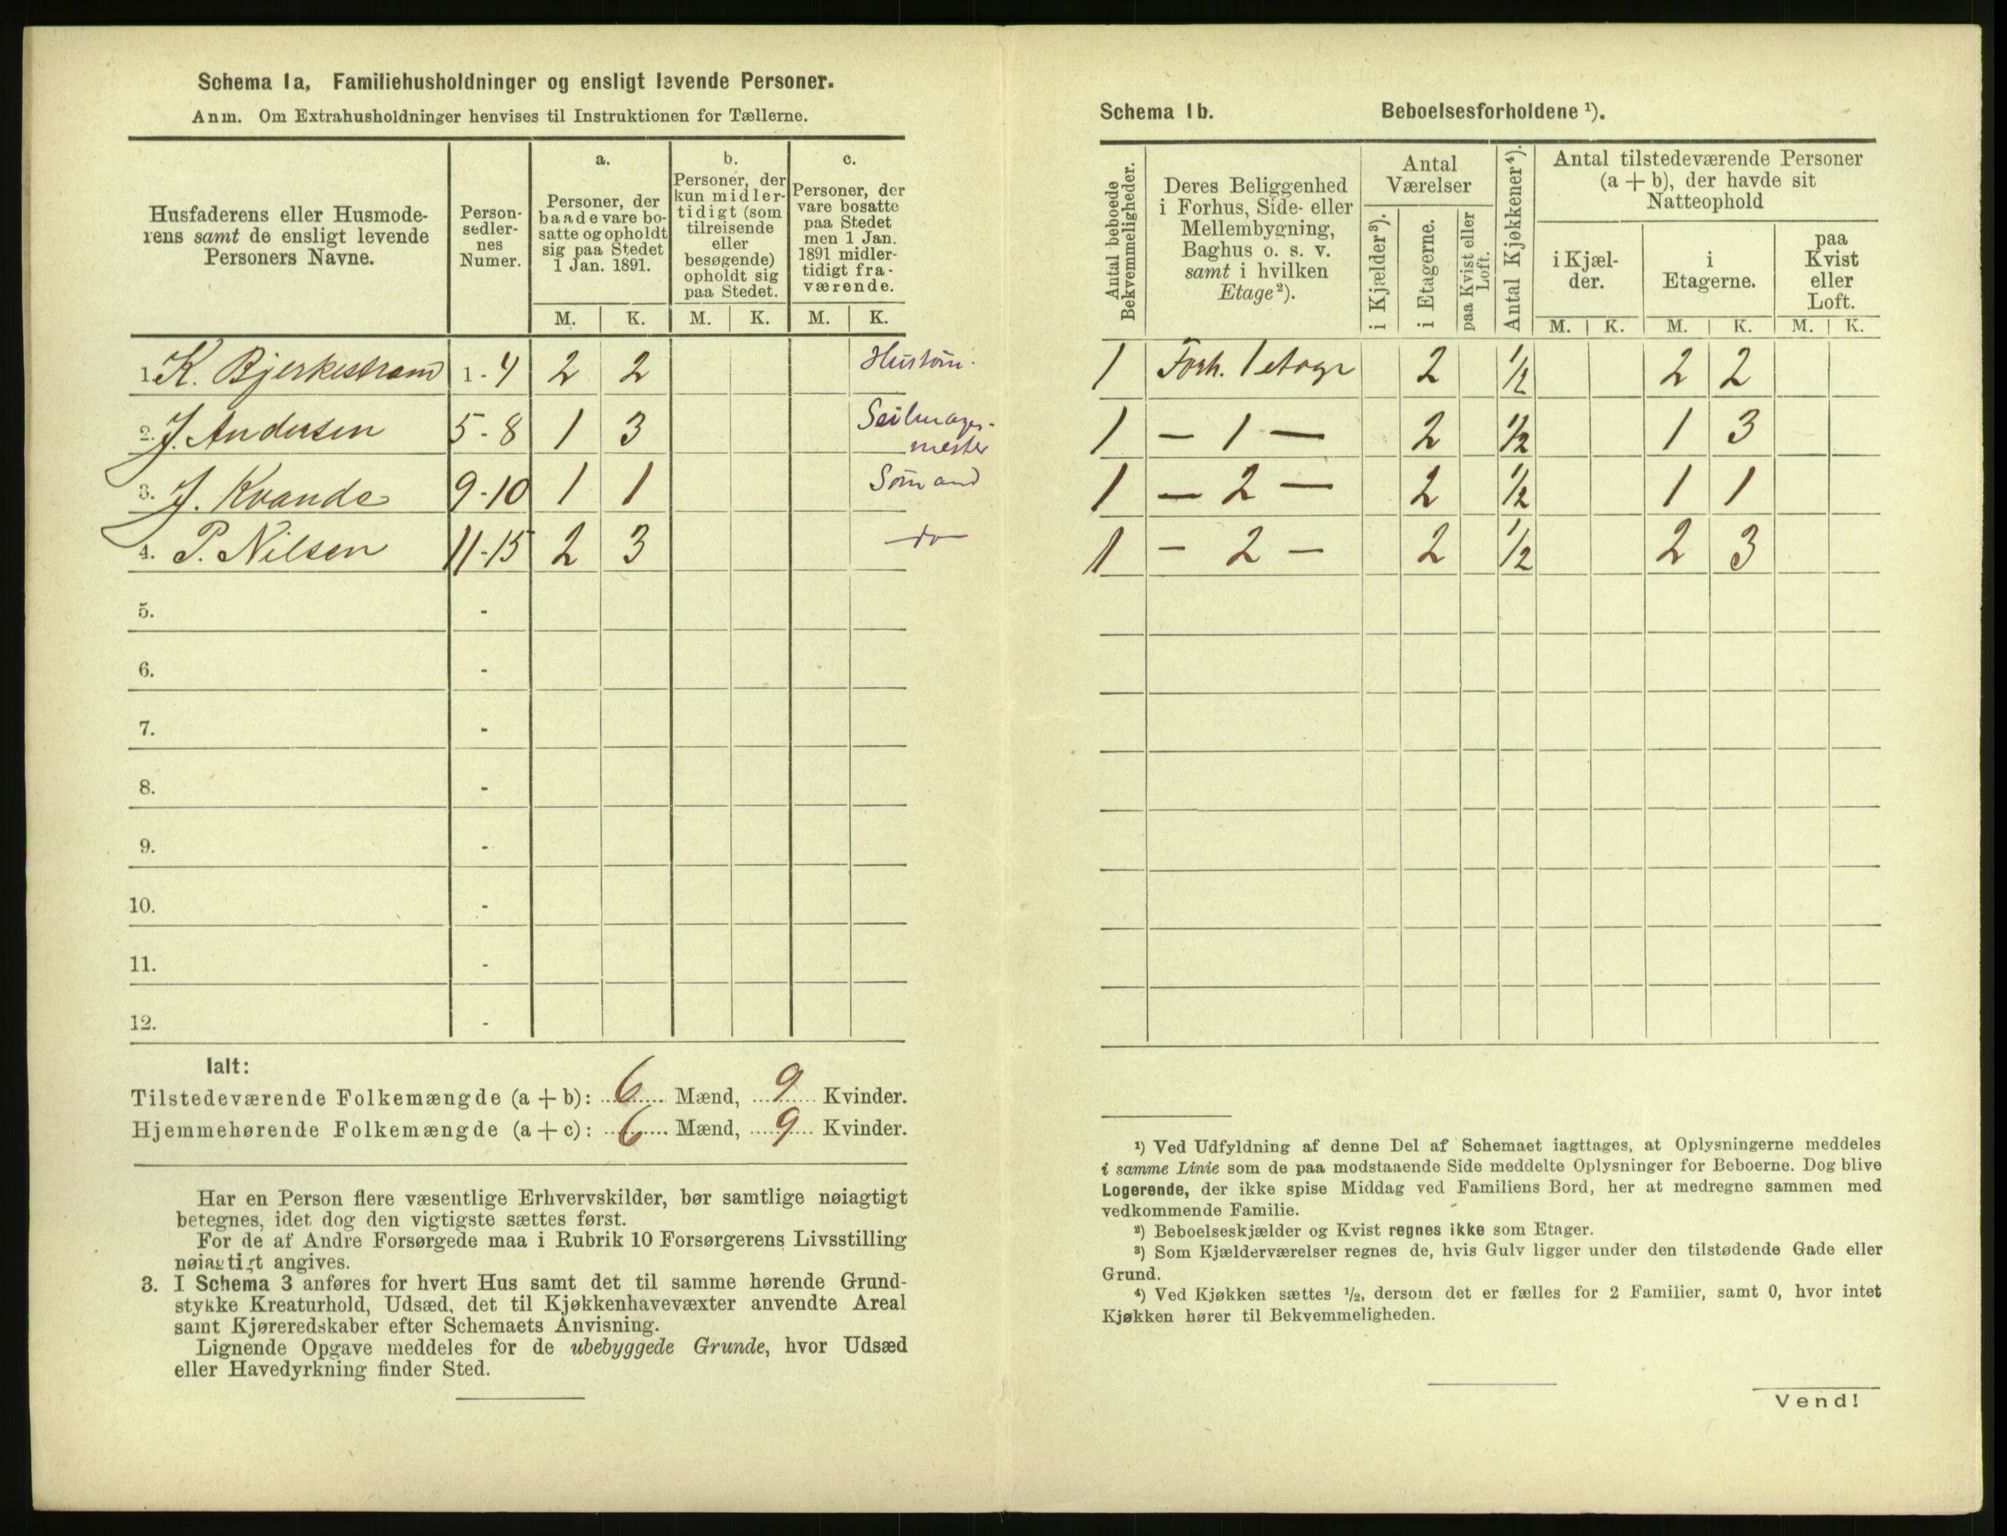 Schema 1a, Familiehusholdninger og ensligt levende Personer.
Anm. Om Extrahusholdninger henvises til Instruktionen for Tællerne.
Husfaderens eller Husmode-
rens samt de ensligt levende
Personers Navne.
Person-
sedler-
nes
Numer.
a.
Personer, der
baade vare bo-
satte og opholdt
sig paa Stedet
1 Jan. 1891.
b.
Personer, der
kun midler-
tidigt (som
tilreisende
eller
besøgende)
opholdt sig
paa Stedet.
c.
Personer, der
vare bosatte
paa Stedet
men 1 Jan.
1891 midler-
tidigt fra-
værende.
M. K. M. K. M. K.
1. K. Bjerkestrand 1 - 4 2 2
2. J. Andersen 5 - 8 1 3 Seilmager-
mester
3. J. Kvande 9 - 10 1 1 Sømand
4. P. Nilsen 11 - 15 2 3 do
5. -
6. -
7. -
8. -
9. -
10. -
11. -
12. -
Ialt:
Tilstedeværende Folkemængde (a + b): 6 Mænd, 9 Kvinder.
Hjemmehørende Folkemængde (a + c): 6 Mænd, 9 Kvinder.
Har en Person flere væsentlige Erhvervskilder, bør samtlige nøiagtigt
betegnes, idet dog den vigtigste sættes først.
For de af Andre Forsørgede maa i Rubrik 10 Forsørgerens Livsstilling
nøiagtigt angives.
3. I Schema 3 anføres for hvert Hus samt det til samme hørende Grund-
stykke Kreaturhold, Udsæd, det til Kjøkkenhavevæxter anvendte Areal
samt Kjøreredskaber efter Schemaets Anvisning.
Lignende Opgave meddeles for de ubebyggede Grunde, hvor Udsæd
eller Havedyrkning finder Sted.
Schema 1b. Beboelsesforholdene ¹).
Antal beboede
Bekvemmeligheder.
Deres Beliggenhed
i Forhus, Side- eller
Mellembygning,
Baghus o. s. v.
samt i hvilken
Etage²).
Antal
Værelser
i Kjælder³).
i Etagerne.
paa Kvist eller
Loft.
Antal Kjøkkener⁴).
Antal tilstedeværende Personer
(a + b), der havde sit
Natteophold
i Kjæl-
der.
i
Etagerne.
paa
Kvist
eller
Loft.
M. K. M. K. M. K.
1 Forh. 1 etage 2 1/2 2 2
1 - 1 - 2 1/2 1 3
1 - 2 - 2 1/2 1 1
1 - 2 - 2 1/2 2 3
¹) Ved Udfyldning af denne Del af Schemaet iagttages, at Oplysningerne meddeles
i samme Linie som de paa modstaaende Side meddelte Oplysninger for Beboerne. Dog blive
Logerende, der ikke spise Middag ved Familiens Bord, her at medregne sammen med
vedkommende Familie.
²) Beboelseskjælder og Kvist regnes ikke som Etager.
³) Som Kjælderværelser regnes de, hvis Gulv ligger under den tilstødende Gade eller
Grund.
⁴) Ved Kjøkken sættes ½, dersom det er fælles for 2 Familier, samt 0, hvor intet
Kjøkken hører til Bekvemmeligheden.
Vend!